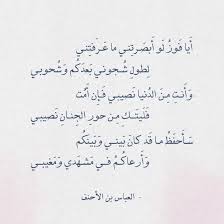 أَيا فَوزُ لَو أَبصَرتِني ما عَرَفتِني
لِطولِ شُجوني بَعدَكُم وَشُحوبي
وَأَنتِ مِنَ الدُنيا نَصيبي فَإِن أَمُت
فَلَيتَكِ مِن حورِ الجِنانِ نَصيبي
سَأَحفَظُ ما قَد كانَ بَيني وَبَينَكُم
وَأَرعاكُمُ في مَشهَدي وَمَغيبي
- العباس بن الأحنف